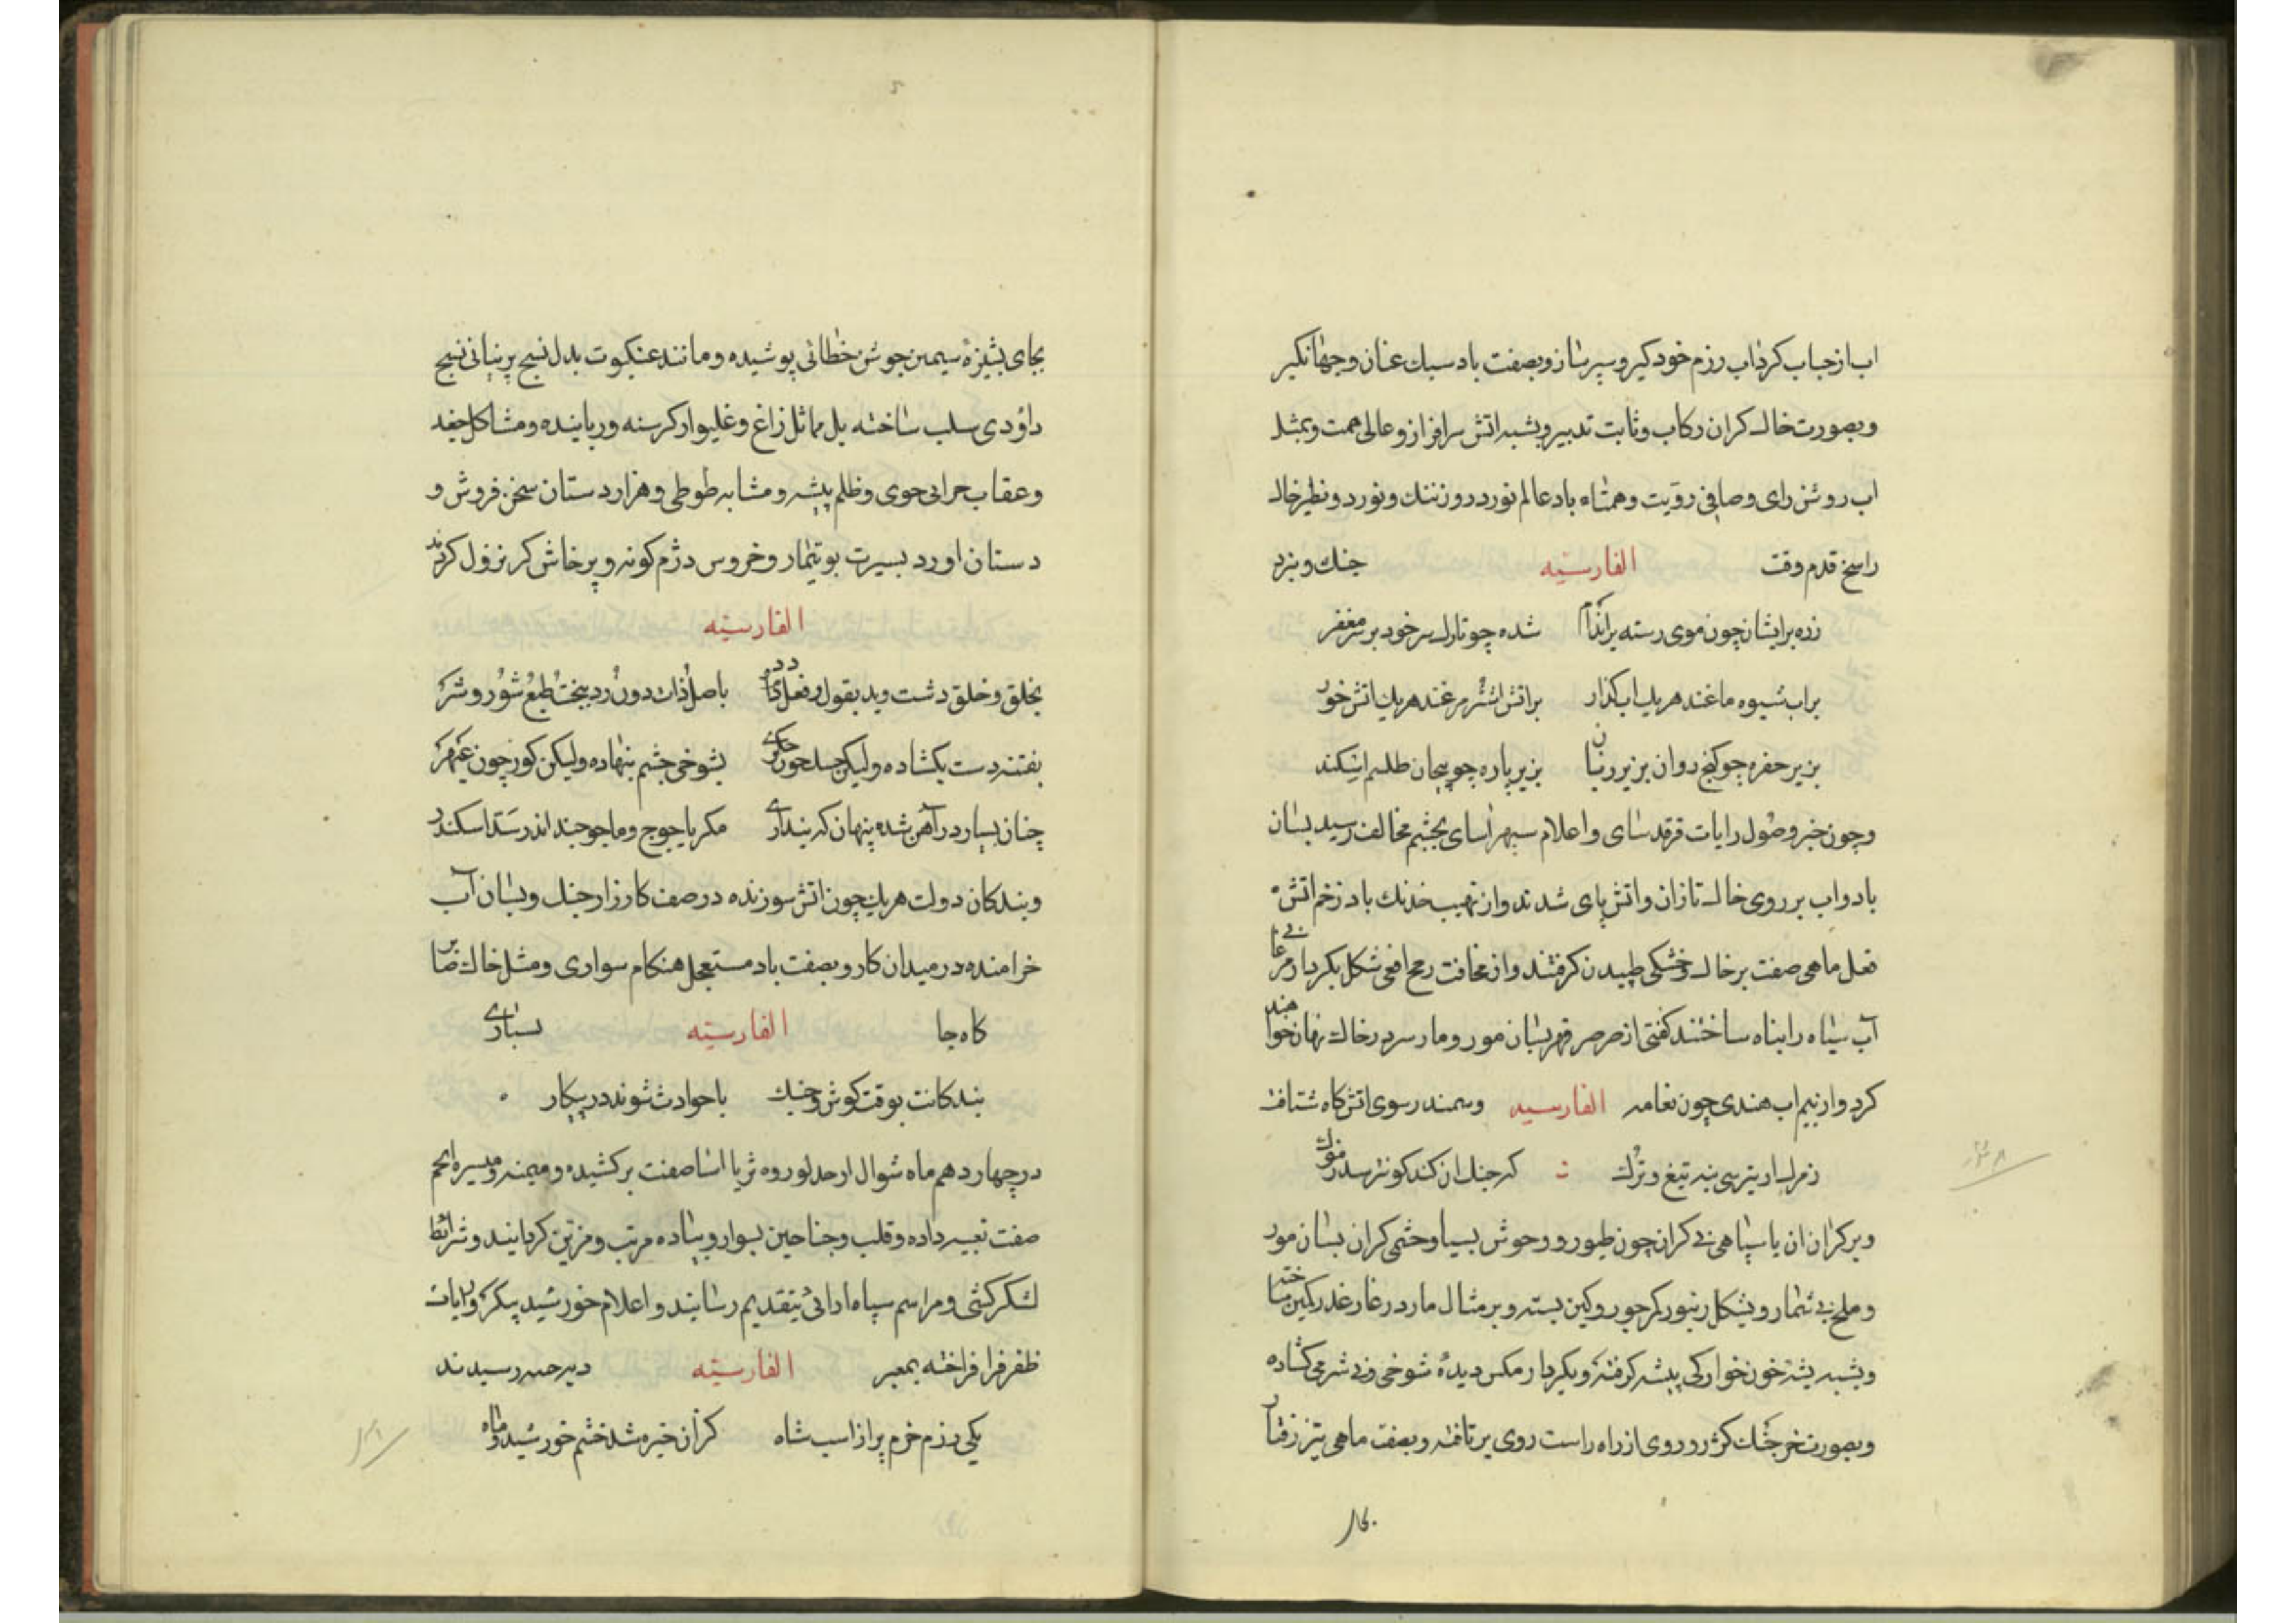 اب از حباب کرداب رزم خود کیر و سپر ساز و بصفت باد سبك عنان و جهانکیر
و بصورت خاك کران رکاب و ثابت تدبیر و بشبه اتش سرافراز و عالی همت و بمثل
اب روشن رای و صافی رؤیت و همتاء باد عالم نورد روز ننك و نورد و نظیر خاك
راسخ قدم وقت الفارسیّه جنك و نبرد
زره بر ایشان چون موی رسته بر اندام شده چو تارك سر خود بر سر مغفر
بر اب شیوه ماغند هر یك اب کذار بر اتش مرغند هر یك اتش خور
بزیر حفره چو کنج روان بزیر زمین بزیر باره چو پیچان طلسم اسکندر
و چون خبر وصول رایات فرقد سای و اعلام سپهر اسای بچشم مخالف رسید بسان
باد و اب بر روی خاك تازان و اتش پای شدند و از نهیب خدنك باد زخم اتش
فعل ماهی صفت بر خاك و خشکی طپیدن کرفتند و از مخافت رمح افعی شکل بکردار مرغابی
آب سیاه را پناه ساختند کفتی از صرصر قهر بسان مور و مار سر در خاك نهان خواهند
کرد و از بیم اب هندی چون نعامه الفارسیه و سمندر سوی اتش کاه شتافت
ز مرك ار بترسی بنه تیغ و ترك که جنك ان کند کو نترسد ز مرك
و بر کران ان یا سپاهی بی کران چون طیور و وحوش بسیا و حشمی کران بسان مور
و ملخ بی شمار و بشکل زنبور کمر جور و کین بسته و بر مثال مار در غار غدر کمین ساخته
و بشبه پشه خون خوارکی پیشه کرفته و بکردار مکس دیدهٔ شوخی و بی شرمی کشاده
و بصورت خرچنك کژ رو روی از راه راست روی بر تافته و بصفت ماهی تیز رفتار
بجای
بجای پشیزهٔ سیمین جوشن خطائی پوشیده و مانند عنکبوت بدل نسج پرنیانی نسج
داودی سلب ساخته بل مماثل زاغ و غلیواژ کرسنه و رباینده و مشاکل جغد
و عقاب خرابی جوی و ظلم پیشه و مشابه طوطی و هزاردستان سخن فروش و
دستان اورد بسیرت بوتیمار و خروس دژم کونه و پرخاش کر نزول کردند
الفارسیّه
بخلق و خلق دشت و بد بقول و فعل باصل ذات دون و رد ببخت طبع شور و شر
بفتنه دست بکشاده ولیکن بشوخی چشم بنهاده ولیکن کور چون عبهر
چنان بسیار در آهن شده پنهان که پنداری مکر یاجوج و ماجوجند اندر سد اسکندر
و بندکان دولت هر یك چون اتش سوزنده در صف کارزار جنك و بسان آب
خرامنده در میدان کار و بصفت باد مستعجل هنکام سواری و مثل خاك صابر
کاه جا الفارسیّه نسپاری
بندکانت بوقت کوشش و جنك با حوادث شوند در پیکار
در چهاردهم ماه شوال از حد لوروه ثریا اسا صفت برکشیده و میمنه و میسره انجم
صفت تعبیه داده و قلب و جناحین بسوار و پیاده مرتب و مزین کردانیند و شرائط
لشکرکشی و مراسم سپاه ارائی بتقدیم رسانیند و اعلام خورشید پیکر و رایات
ظفر فرا فراخته بمعبر الفارسیّه رسیدند
یکی رزم خرم پر از اسب شاه کز آن خیره شد خشم خورشید و ماه